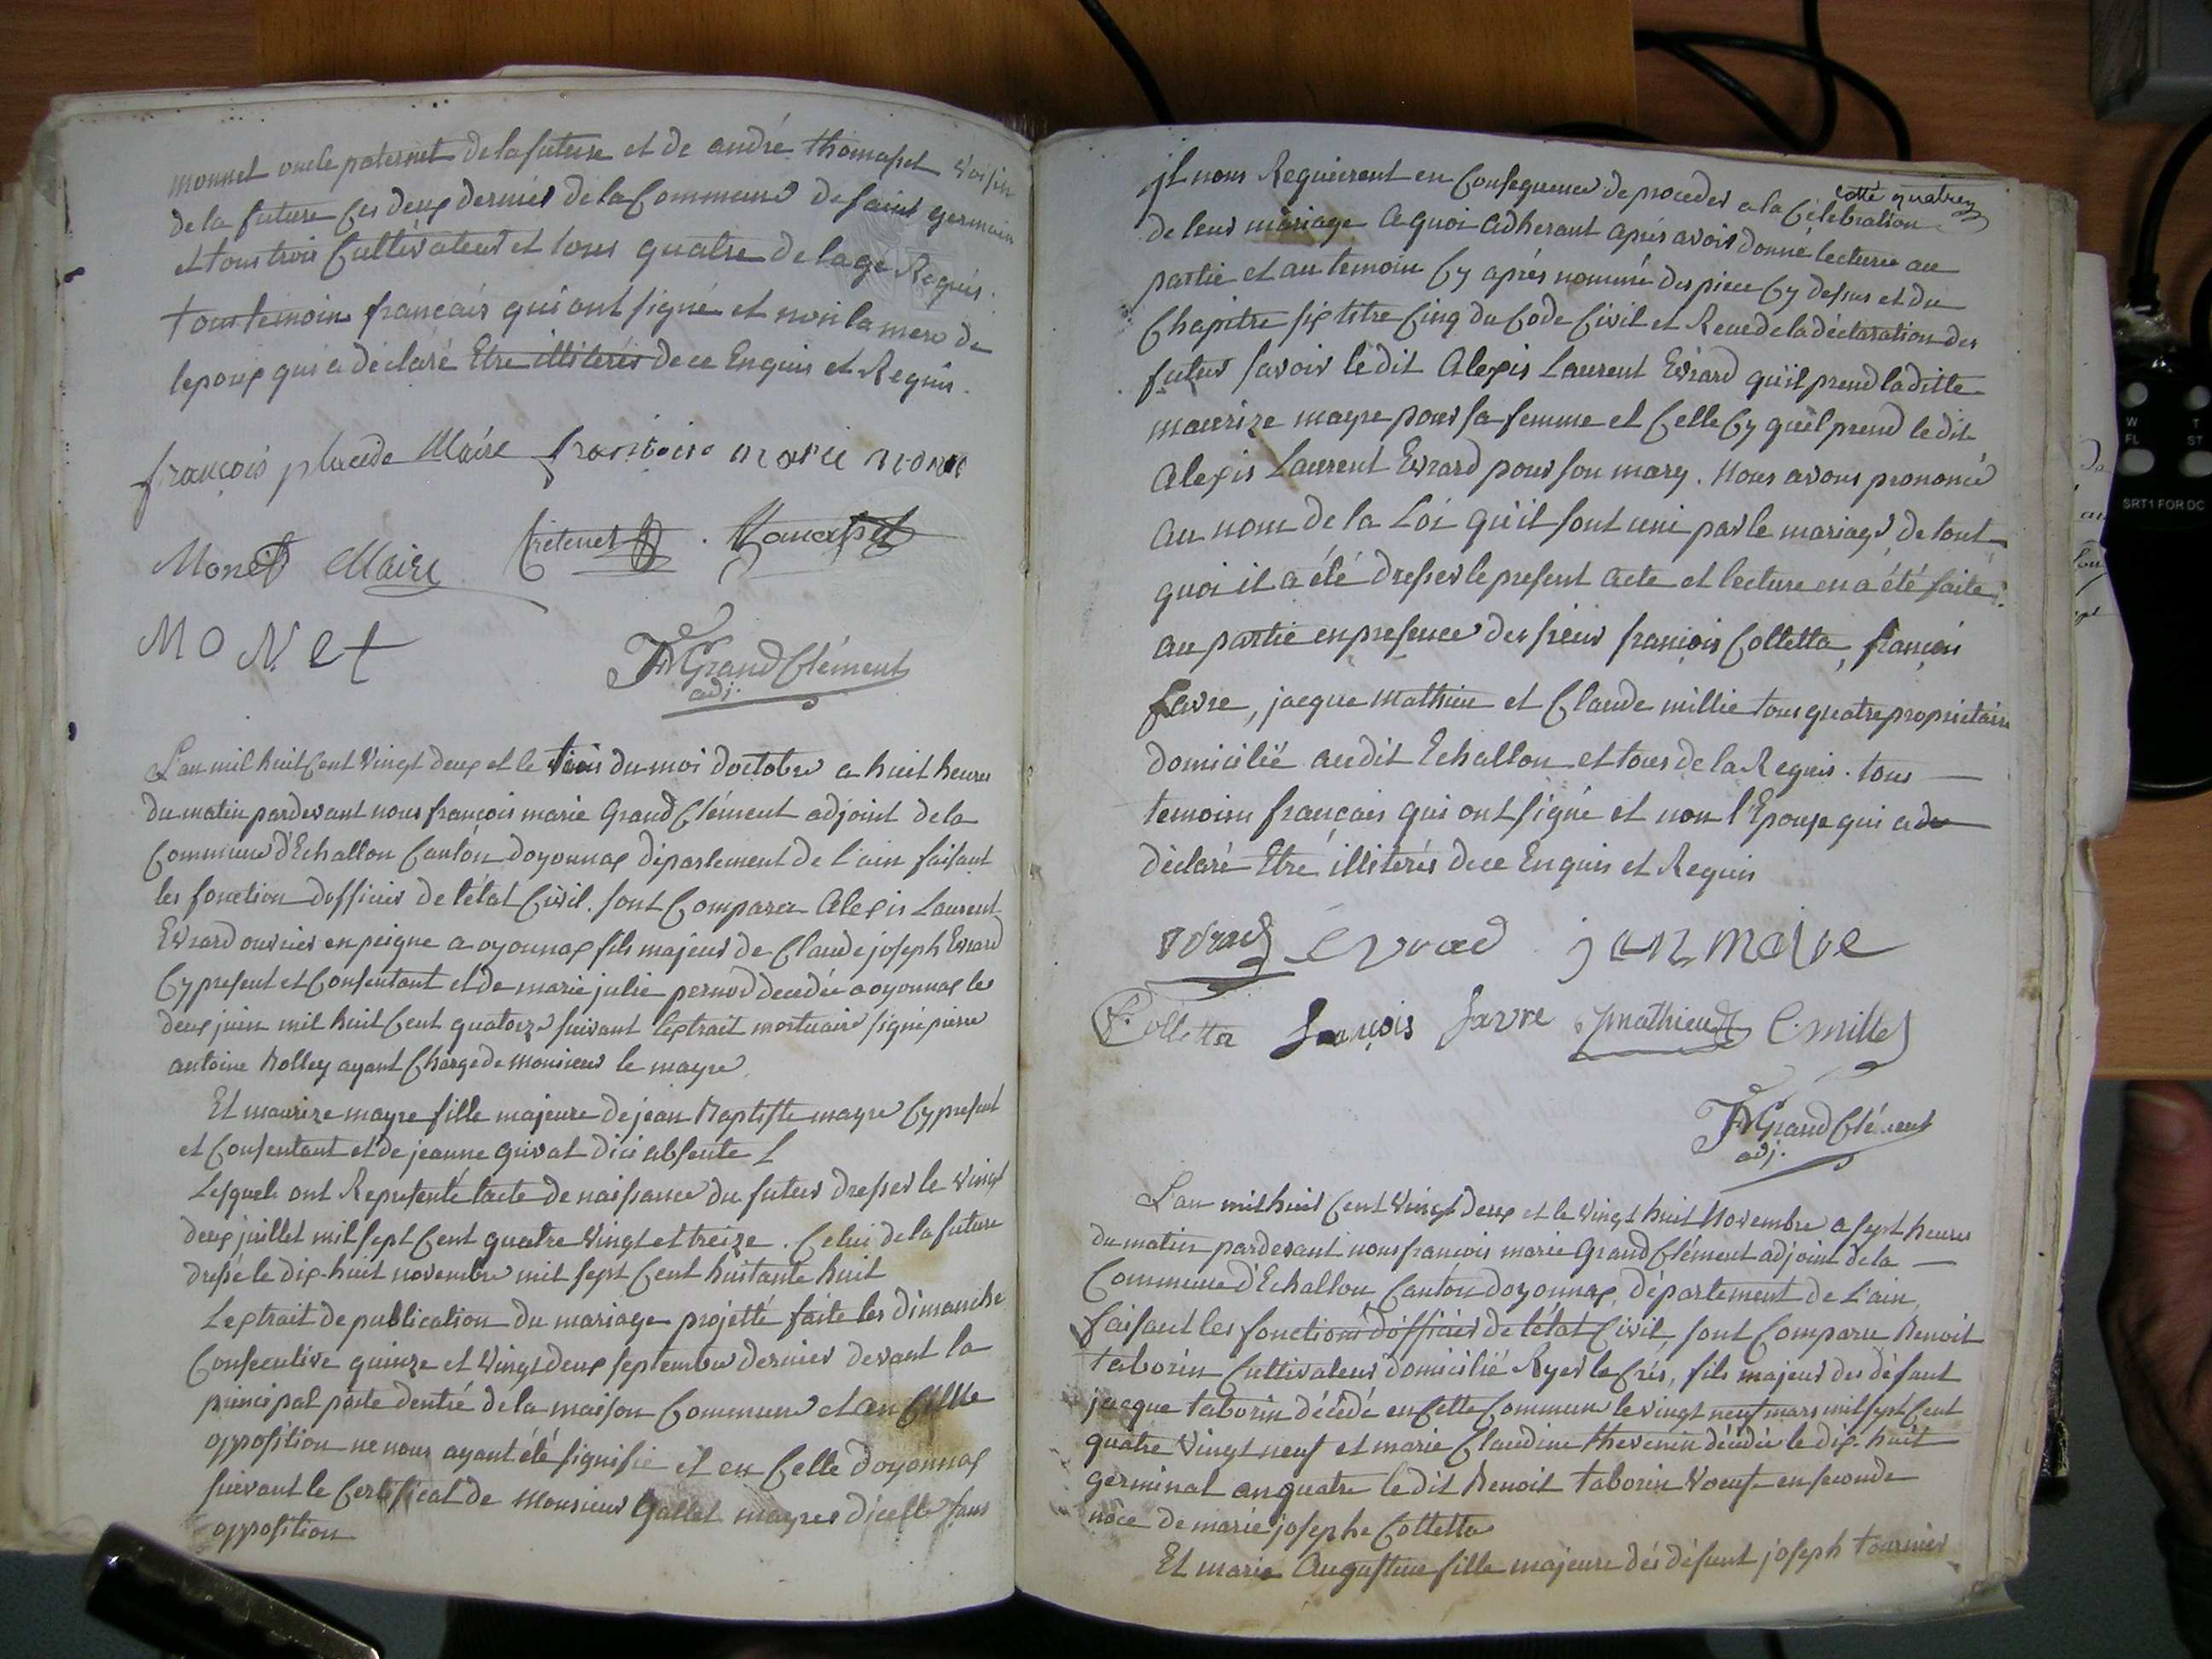 monnet oncle paternel de la future et de andré thomasset voisin
de la future ces deux dernier de la Commune de saint germain
et tous trois Cultivateur et tous quatre de lage Requis.
tous temoins français qui ont signé et non la mere de
lepoux qui a déclaré Etre illiterés de ce Enquis et Requis.
françois placide Maire françoise marie monet
Monet Maire Thomasset
MONet
Grand Clément
adj.
L'an mil huit Cent Vingt deux et le trois du moi doctobre a huit heures
du matin pardevant nous françois marie Grand Clément adjoint de la
Commune d'Echallon Canton doyonnax département de l'ain faisant
les fonction dofficier de l'état Civil. sont Comparu Alexis Laurent
Evrard ouvrier en peigne a oyonnax fils majeur de Claude joseph Evrard
Cy present et Consentant et de marie julie pernod decedée a oyonnax le
deux juin mil huit Cent quatorze suivant l'extrait mortuaire signé pierre
antoine Bolley ayant Charge de monsieur le mayre
Et maurize mayre fille majeure de jean Baptiste mayre Cy present
et Consentant et de jeanne Guivat dici absente
Lesquels ont Representé lacte de naissance du futur dresser le vingt
deux juillet mil sept Cent quatre Vingt et treize. Celui de la future
dressé le dix-huit novembre mil sept Cent huitante huit
Lextrait de publication du mariage projetté faite les dimanche
Consecutive quinze et Vingt deux septembre dernier devant la
principal porte dentré de la maison Commune et aucune
opposition ne nous ayant été signifié et en Celle doyonnax
suivant le Certificat de Monsieur Gallet mayre dicelle sans
opposition
cotté quatre
jl nous Requierent en Consequence de proceder a la Célebration
de leur mariage a quoi adherant aprés avoir donné lecture au
partie et au temoin Cy aprés nommé des piece Cy dessus et du
Chapitre six titre Cinq du Code Civil et Recue de la déclaration des
futur savoir ledit Alexis Laurent Evrard qu'il prend laditte
maurize mayre pour sa femme et Celle Cy quel prend ledit
Alexis Laurent Evrard pour son mary. Nous avons prononcé
au nom de la Loi qu'il sont uni par le mariage, de tout
quoi il a été dresser le present acte et lecture en a été faite
au partie en presence des sieur françois Colletta, françois
favre, jacque Mathieu et Claude millie tous quatre proprietaire
domicilié audit Echallon et tous de la Requis. tous
temoins français qui ont signé et non l'Epouse qui a de
déclaré Etre illiterés de ce Enquis et Requis
evrard evrad jan maire
F. Colletta françois favre j mathieu C. millet
Grand Clément
adj.
L'an mil huit Cent Vingt deux et le Vingt huit Novembre a sept heures
du matin pardevant nous françois marie Grand Clément adjoint de la
Commune d'Echallon Canton doyonnax, département de L'ain,
faisant les fonctions d'officier de létat Civil, sont Comparu Benoit
taborin Cultivateur domicilié a yer le Crés, fils majeur des défunt
jacque taborin décédé en Cette Commune le vingt neuf mars mil sept Cent
quatre Vingt neuf et marie Claudine thevenin décédée le dix-huit
germinal an quatre ledit Benoit taborin Voeuf en seconde
nôce de marie josephe Colletta
Et marie Augustine fille majeure dés défunt joseph tournier